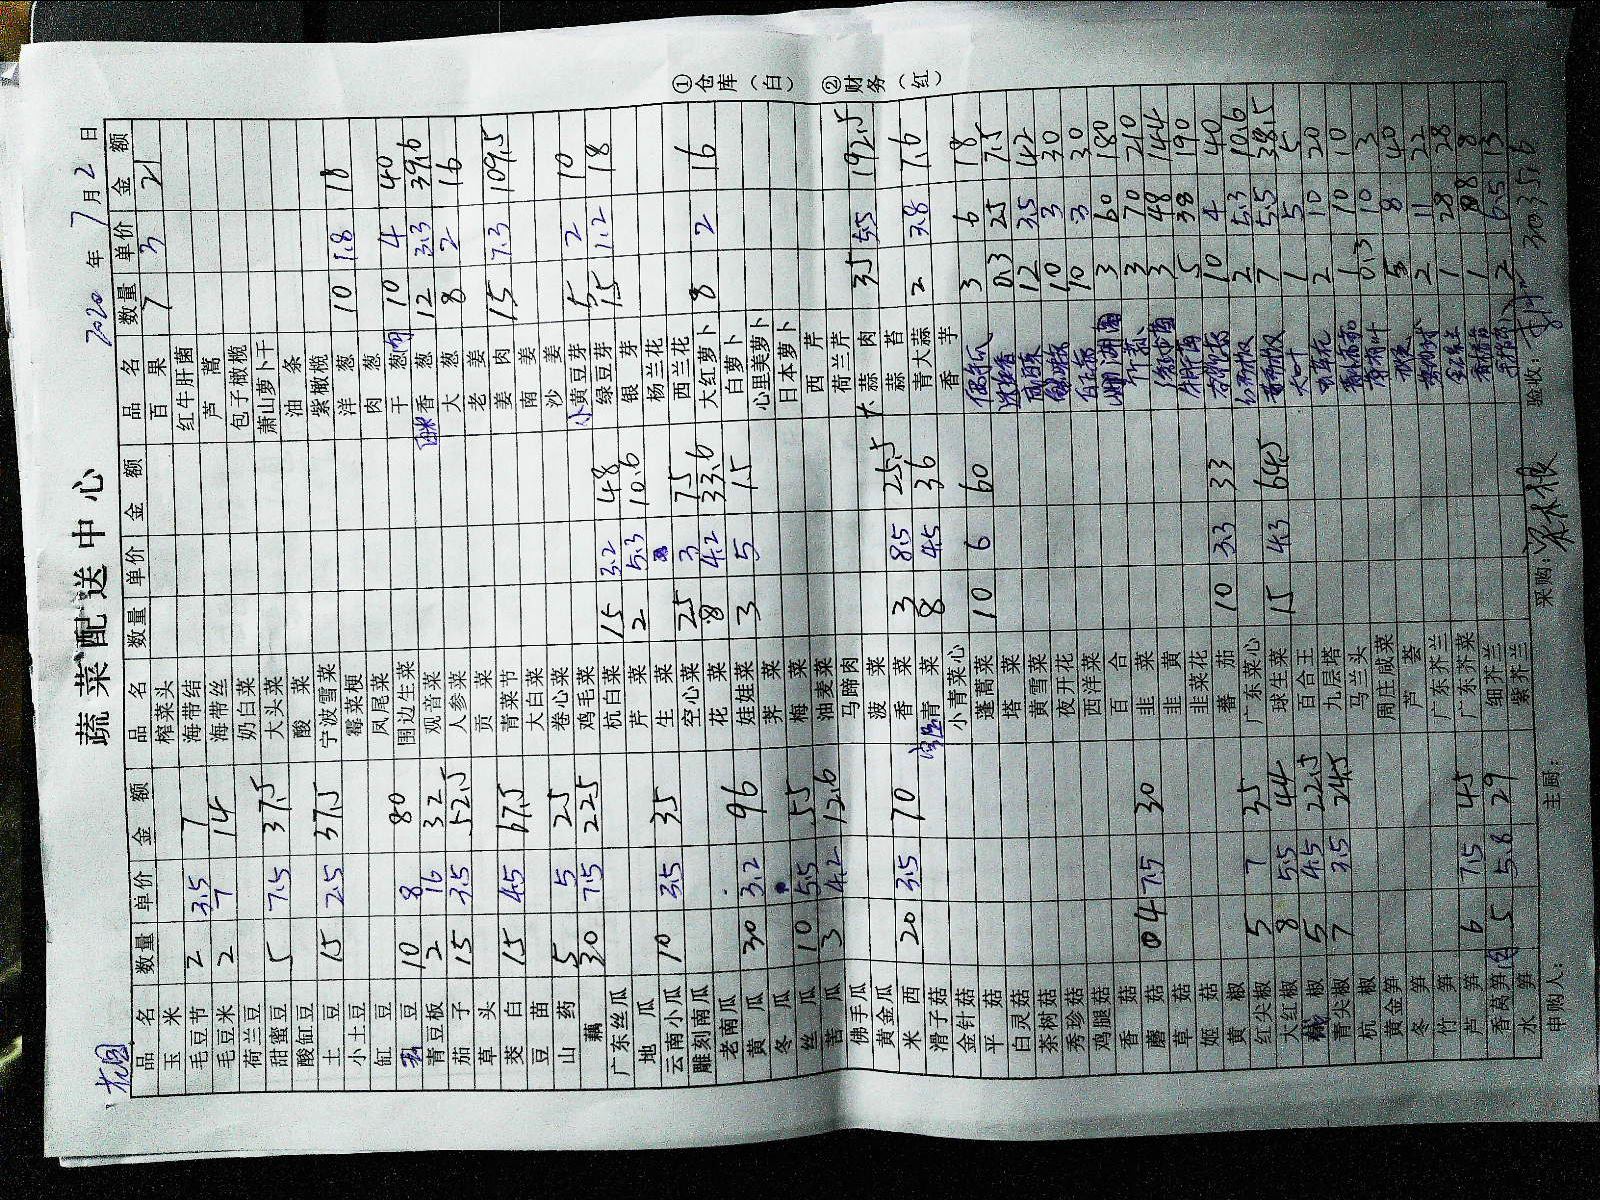 蔬菜配送中心
花园 2020年7月2日
品名 数量 单价 金额 品名 数量 单价 金额 品名 数量 单价 金额
玉米 榨菜头 百果 7 3 21
毛豆节 2 3.5 7 海带结 红牛肝菌
毛豆米 2 7 14 海带丝 芦蒿
荷兰豆 奶白菜 包子橄榄
甜蜜豆 5 7.5 37.5 大头菜 萧山萝卜干
酸缸豆 酸菜 油条
土豆 15 2.5 37.5 宁波雪菜 紫橄榄
小土豆 霉菜梗 洋葱 10 1.8 18
缸豆 凤尾菜 肉葱
豆 10 8 80 围边生菜 干葱 10 4 40
青豆板 2 16 32 观音菜 香葱 12 3.3 39.6
茄子 15 3.5 52.5 人参菜 大葱 8 2 16
草头 贡菜 老姜
茭白 15 4.5 67.5 青菜节 姜肉 15 7.3 109.5
豆苗 大白菜 南姜
山药 5 5 25 卷心菜 沙姜
藕 30 7.5 225 鸡毛菜 小黄豆芽 5 2 10
广东丝瓜 杭白菜 15 3.2 48 绿豆芽 15 1.2 18
地瓜 芹菜 2 5.3 10.6 银芽
云南小瓜 10 3.5 35 生菜 杨兰花
雕刻南瓜 空心菜 25 3 75 西兰花
老南瓜 花菜 8 4.2 33.6 大红萝卜 8 2 16
黄瓜 30 3.2 96 娃娃菜 3 5 15 白萝卜
冬瓜 荠菜 心里美萝卜
丝瓜 10 5.5 55 梅菜 日本萝卜
苦瓜 3 4.2 12.6 油麦菜 西芹
佛手瓜 马蹄肉 荷兰芹
黄金瓜 菠菜 大蒜肉 35 5.5 192.5
米西 20 3.5 70 香菜 3 8.5 25.5 蒜苔
滑子菇 青菜 8 4.5 36 青大蒜 2 3.8 7.6
金针菇 小青菜心 香芋
平菇 蓬蒿菜 10 6 60 3 6 18
白灵菇 塔菜 0.3 25 7.5
茶树菇 黄雪菜 12 3.5 42
秀珍菇 夜开花 10 3 30
鸡腿菇 西洋菜 10 3 30
香菇 百合 3 60 180
蘑菇 04 7.5 30 韭菜 3 70 210
草菇 韭黄 3 48 144
姬菇 韭菜花 5 38 190
黄椒 番茄 10 3.3 33 10 4 40
红尖椒 5 7 35 广东菜心 2 5.3 10.6
大红椒 8 5.5 44 球生菜 15 4.3 64.5 7 5.5 38.5
椒 5 4.5 22.5 百合王 1 5 5
青尖椒 7 3.5 24.5 九层塔 2 10 20
杭椒 马兰头 1 10 10
黄金笋 周庄咸菜 0.3 10 3
冬笋 芦荟 5 8 40
竹笋 广东芥兰 2 11 22
芦笋 6 7.5 45 广东芥菜 1 28 28
香莴笋 5 5.8 29 细芥兰 1 8 8
水笋 紫芥兰 2 6.5 13
申购人: 主厨: 采购: 验收: 3035.6
①仓库(白) ②财务(红)